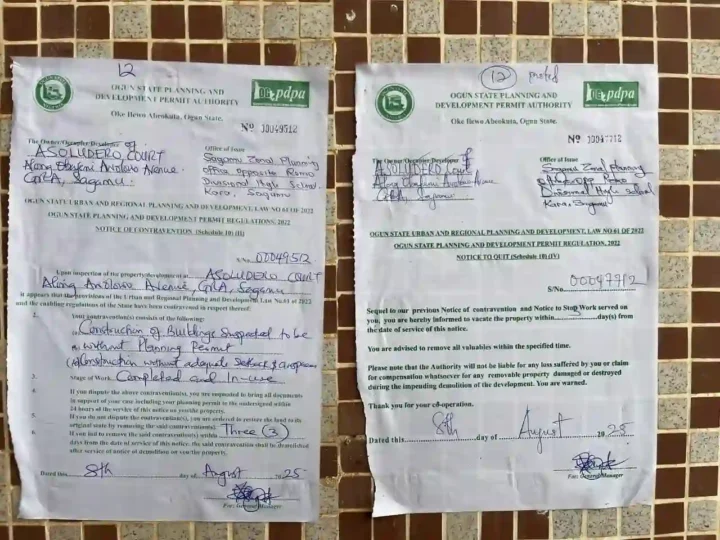 12
OGUN STATE PLANNING AND
DEVELOPMENT PERMIT AUTHORITY
pdpa
Oke Ilewo Abeokuta, Ogun State.
Nº 00049512
The Owner/Occupier/Developer of
ASOLUDERO COURT
Along Obafemi Awolowo Avenue
GRA, Sagamu.
Office of Issue
Sagamu Zonal Planning
Office Opposite Remo
Divisional High School.
Kara, Sagamu
OGUN STATE URBAN AND REGIONAL PLANNING AND DEVELOPMENT, LAW NO 61 OF 2022
OGUN STATE PLANNING AND DEVELOPMENT PERMIT REGULATIONS, 2022
NOTICE OF CONTRAVENTION (Schedule 10) (II)
S/No. 00049512
Upon inspection of the property/developer at ASOLUDERO COURT
Along Awolowo Avenue, GRA, Sagamu
it appears that the provisions of the Urban and Regional Planning and Development Law No.61 of 2022
and the enabling regulations of the State have been contravened in respect thereof:
2. Your contravention(s) consists of the following:
Construction of Buildings Suspected to be
without Planning Permit
Construction without adequate Setback & airspaces
3. Stage of Work Completed and In-use
4. If you dispute the above contravention(s), you are required to bring all documents
in support of your case including your planning permit to the undersigned within
24 hours of the service of this notice on you/the property.
5. If you do not dispute the contravention(s), you are ordered to restore the land to its
original state by removing the said contravention(s)
6. If you fail to remove the said contravention(s) within Three (3)
days from the date of service of this notice, the said contravention shall be demolished
after service of notice of demolition on you/the property.
Dated this 8th day of August 2025
For: General Manager
12 posted
OGUN STATE PLANNING AND
DEVELOPMENT PERMIT AUTHORITY
pdpa
Oke Ilewo Abeokuta, Ogun State.
Nº 00047712
The Owner/Occupier/Developer of
ASOLUDERO Court
Along Obafemi Awolowo Avenue
GRA, Sagamu
Office of Issue
Sagamu Zonal Planning
Office Opp Remo
Divisional High School
Kara, Sagamu
OGUN STATE URBAN AND REGIONAL PLANNING AND DEVELOPMENT, LAW NO 61 OF 2022
OGUN STATE PLANNING AND DEVELOPMENT PERMIT REGULATION, 2022
NOTICE TO QUIT (Schedule 10) (IV)
S/No 00047712
Sequel to our previous Notice of contravention and Notice to Stop Work served on
you, you are hereby informed to vacate the property within 3 day(s) from
the date of service of this notice.
You are advised to remove all valuables within the specified time.
Please note that the Authority will not be liable for any loss suffered by you or claim
for compensation whatsoever for any removable property damaged or destroyed
during the impending demolition of the development. You are warned.
Thank you for your co-operation.
Dated this 8th day of August 2025
For: General Manager